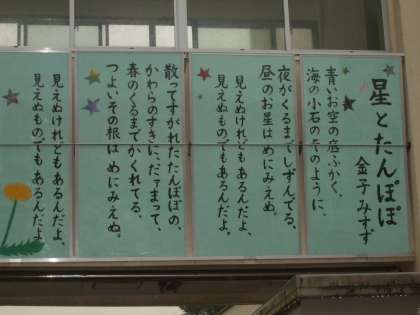 星とたんぽぽ
金子みすゞ
青いお空の底ふかく、
海の小石のそのように、
夜がくるまでしずんでる、
昼のお星はめにみえぬ。
見えぬけれどもあるんだよ、
見えぬものでもあるんだよ。
散ってすがれたたんぽぽの、
かわらのすきに、だァまって、
春のくるまでかくれてる、
つよいその根はめにみえぬ。
見えぬけれどもあるんだよ、
見えぬものでもあるんだよ。